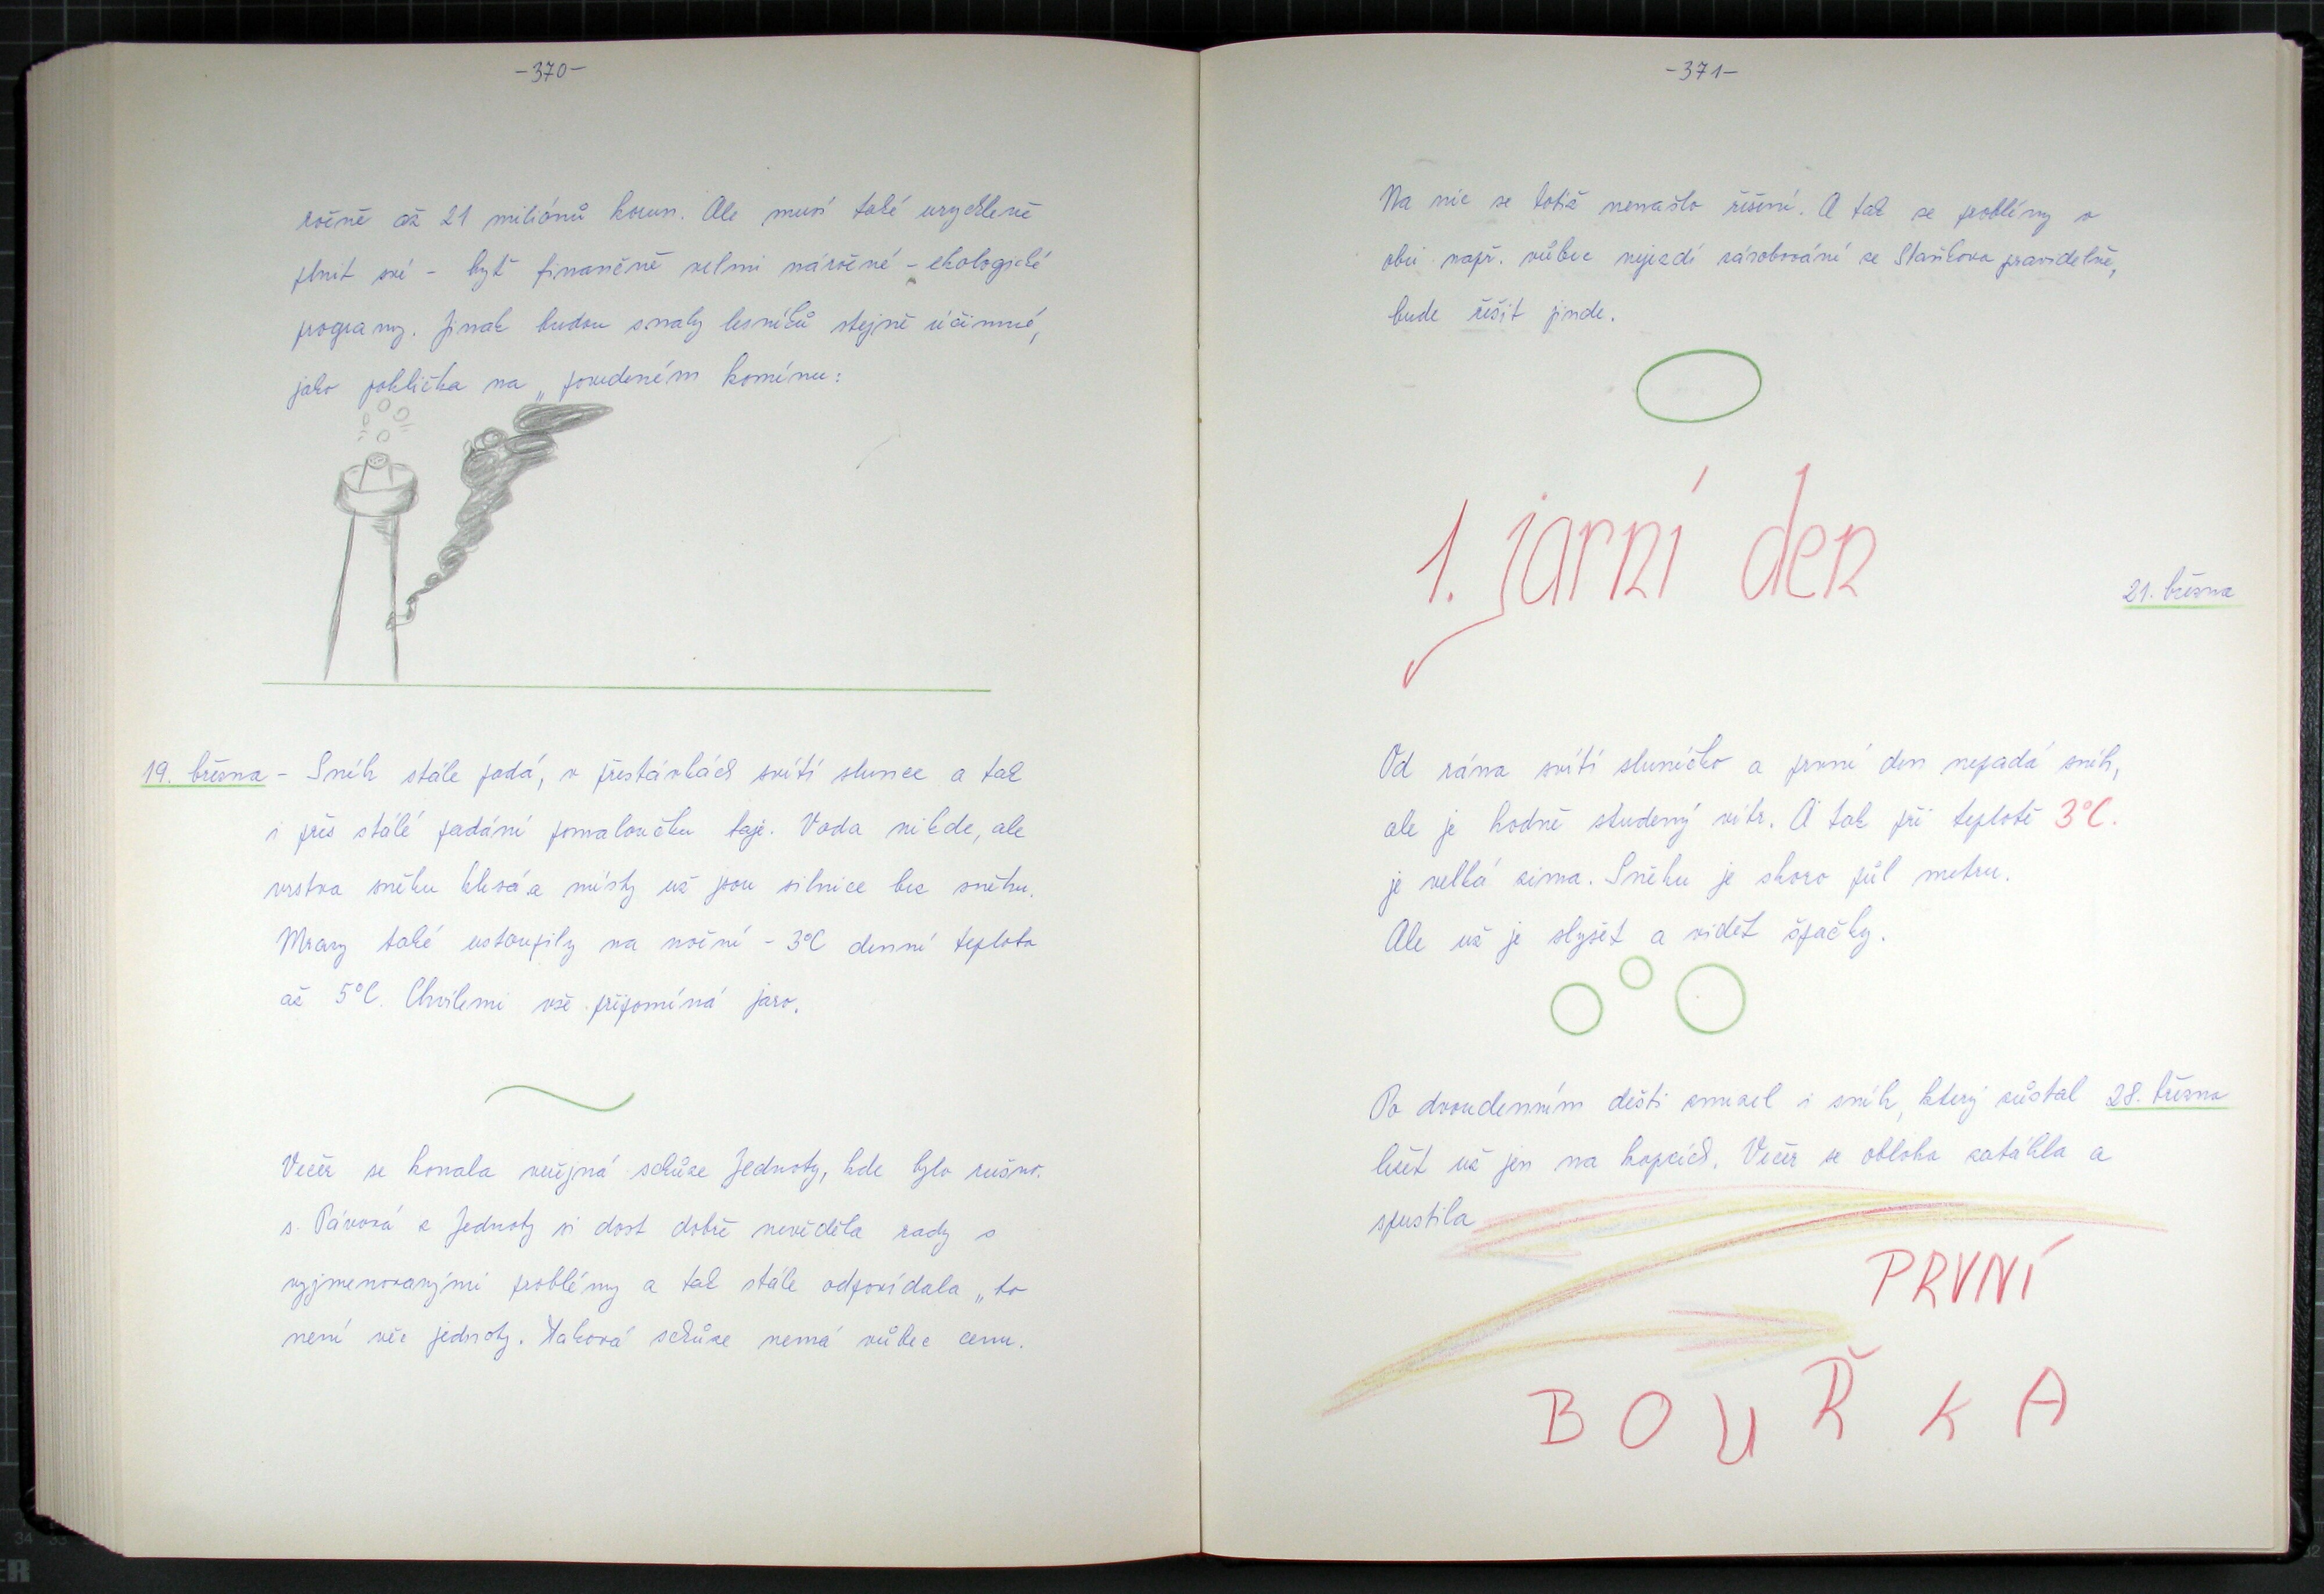 -370-
ročně až 21 miliónů korun. Ale musí také urychleně
plnit své - byť finančně velmi náročné - ekologické
programy. Jinak budou snahy lesníků stejně účinné,
jako poklička na „povedeném komínu:
19. března - Sníh stále padá, v přestávkách svítí slunce a tak
i přes stálé padání pomaloučku taje. Voda nikde, ale
vrstva sněhu klesá a místy už jsou silnice bez sněhu.
Mrazy také ustoupily na noční - 3°C denní teplota
až 5°C. Chvílemi vše připomíná jaro.
Večer se konala veřejná schůze Jednoty, kde bylo rušno.
s. Pávová z Jednoty si dost dobře nevěděla rady s
vyjmenovanými problémy a tak stále odpovídala „to
není věc jednoty. Taková schůze nemá vůbec cenu.
-371-
Na nic se totiž nenašlo řešení. A tak se problémy v
obci např. vůbec nejezdí zásobování ze Staňkova pravidelně,
bude řešit jinde.
1. jarní den
21. března
Od rána svítí sluníčko a první den nepadá sníh,
ale je hodně studený vítr. A tak při teplotě 3°C.
je velká zima. Sněhu je skoro půl metru.
Ale už je slyšet a vidět špačky.
Po dvoudenním dešti zmizel i sníh, který zůstal 28. března
ležet už jen na kopcích. Večer se obloha zatáhla a
spustila
PRVNÍ
BOUŘKA